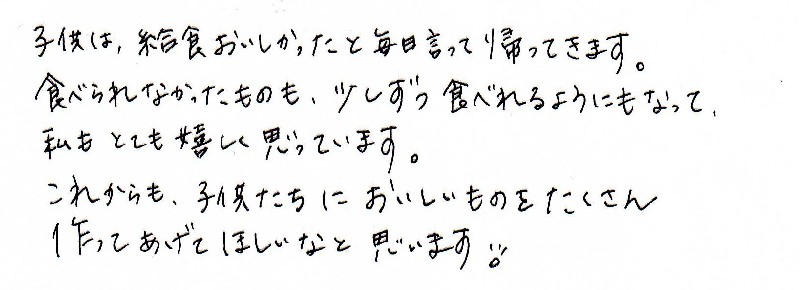 子供は、給食おいしかったと毎日言って帰ってきます。
食べられなかったものも、少しずつ食べれるようにもなって、
私もとても嬉しく思っています。
これからも、子供たちにおいしいものをたくさん
作ってあげてほしいなと思います